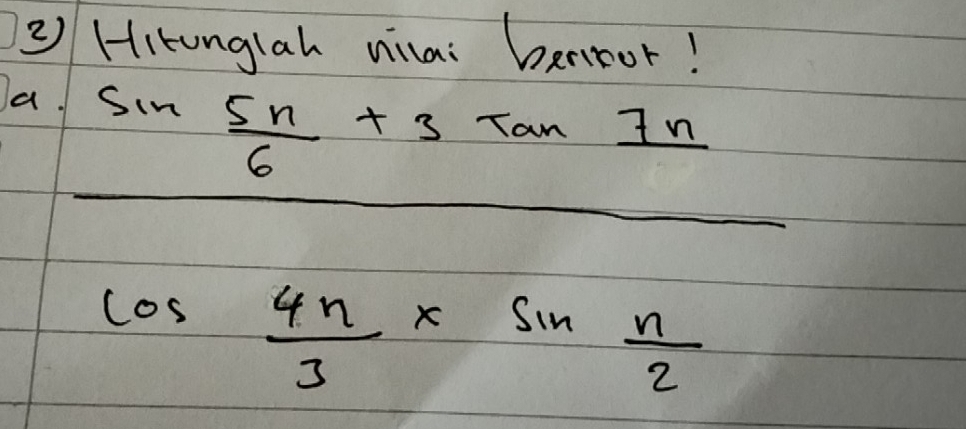 2) Hitunglah nilai berikut!
a. Sin 5π/6 + 3 Tan 7π/
Cos 4π/3 x Sin π/2